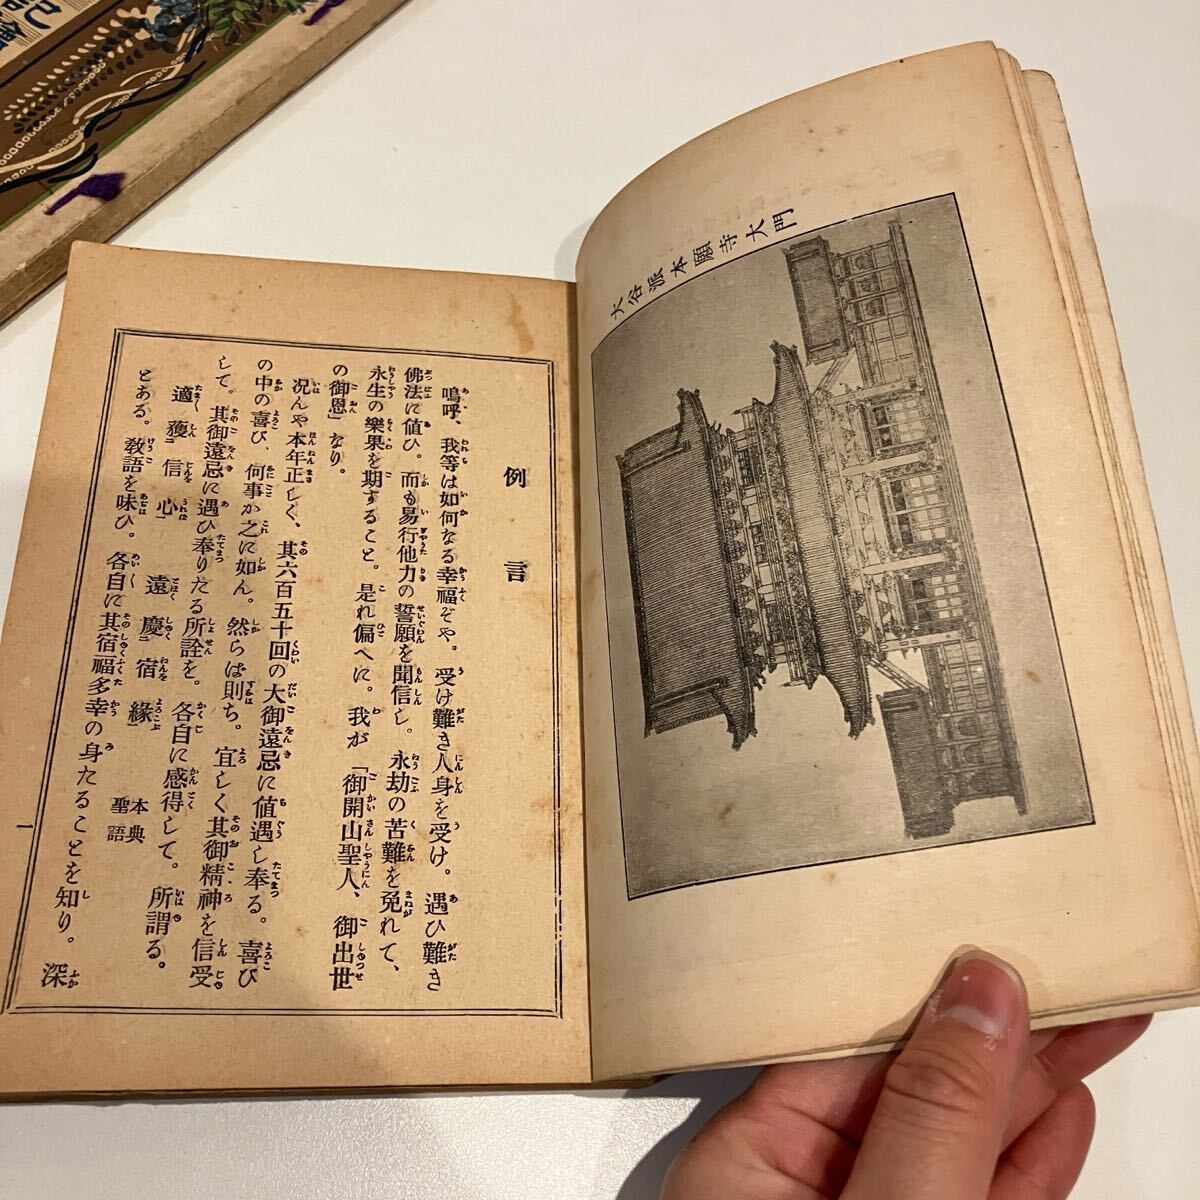 大谷派本願寺大門
例言
嗚呼、我等は如何なる幸福ぞや。受け難き人身を受け。遇ひ難き
佛法に値ひ。而も易行他力の誓願を聞信し。永劫の苦難を免れて、
永生の樂果を期すること。是れ偏へに。我が「御開山聖人、御出世
の御恩」なり。
況んや本年正しく、其六百五十回の大御遠忌に値遇し奉る。喜び
の中の喜び、何事か之に如ん。然らば則ち。宜しく其御精神を信受
して。其御遠忌に遇ひ奉りたる所詮を。各自に感得して。所謂る。
適獲二信心一遠慶二宿緣一
本典
聖語
とある。敎語を味ひ。各自に其宿福多幸の身たることを知り。深
一